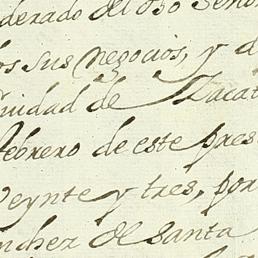 derado del dho Señor
os sus negocios, y d
Ciudad de Zacat
febrero de este pres
Veynte y tres, por
nchez de Santa